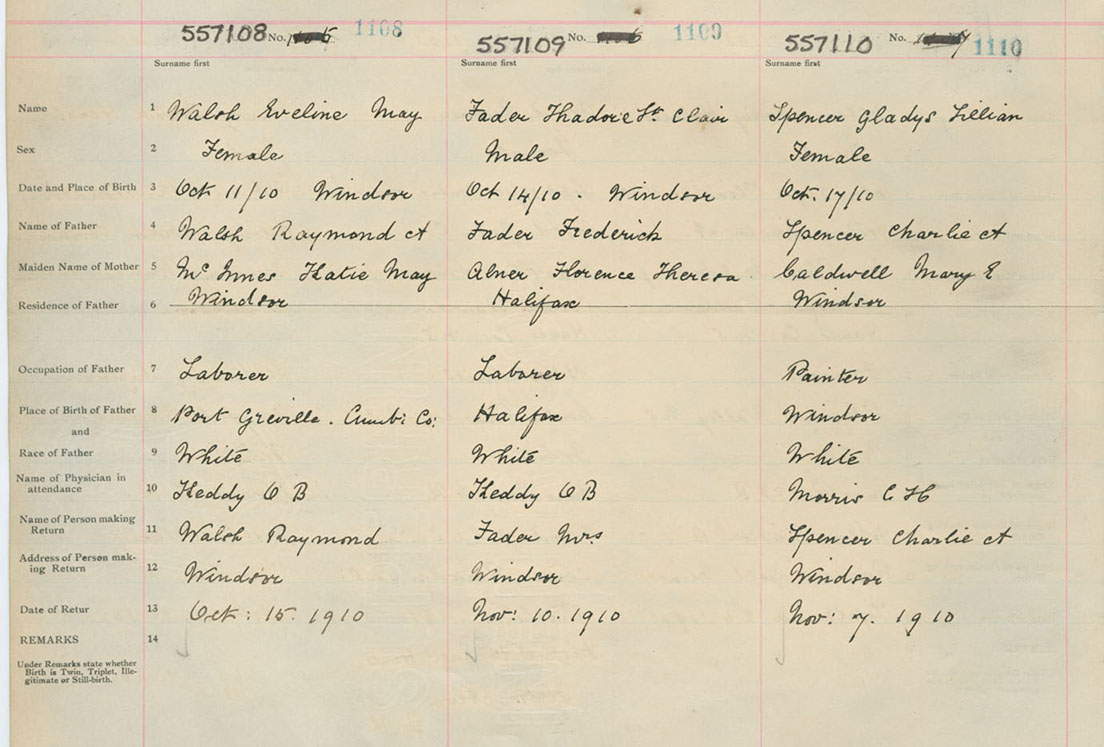 557108 No. 1108 557109 No. 1109 557110 No. 1110
Surname first Surname first Surname first
Name 1 Walsh Eveline May Fader Thadore St. Clair Spencer Gladys Lillian
Sex 2 Female Male Female
Date and Place of Birth 3 Oct 11/10 Windsor Oct 14/10 . Windsor Oct. 17/10
Name of Father 4 Walsh Raymond A Fader Frederick Spencer Charlie A
Maiden Name of Mother 5 McInnes Katie May Abner Florence Theresa Caldwell Mary E
Residence of Father 6 Windsor Halifax Windsor
Occupation of Father 7 Laborer Laborer Painter
Place of Birth of Father 8 Port Greville . Cumb: Co: Halifax Windsor
and
Race of Father 9 White White White
Name of Physician in
attendance 10 Keddy O B Keddy O B Morris C H
Name of Person making
Return 11 Walsh Raymond Fader Mrs Spencer Charlie A
Address of Person mak-
ing Return 12 Windsor Windsor Windsor
Date of Retur 13 Oct: 15. 1910 Nov: 10. 1910 Nov: 7. 1910
REMARKS 14
Under Remarks state whether
Birth is Twin, Triplet, Ille-
gitimate or Still-birth.